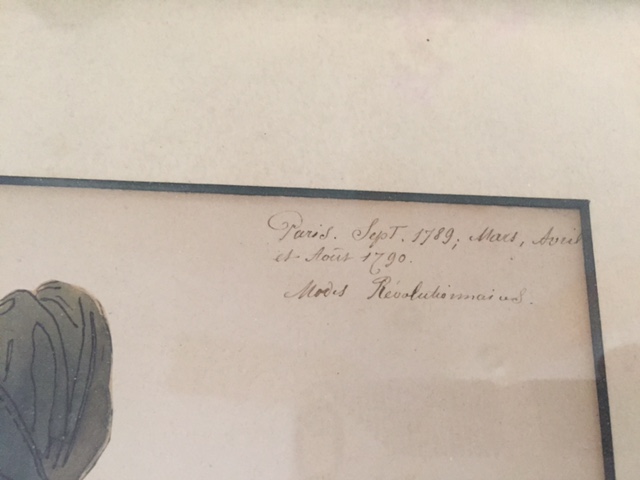 Paris. Sept. 1789; Mars, Avril
et Août 1790.
Modes Révolutionnaires.